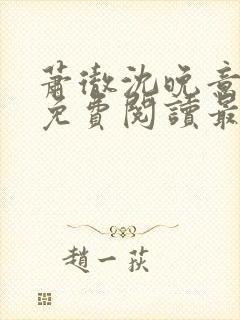 蕭徹沈晚意
免費閱讀最
趙一荻